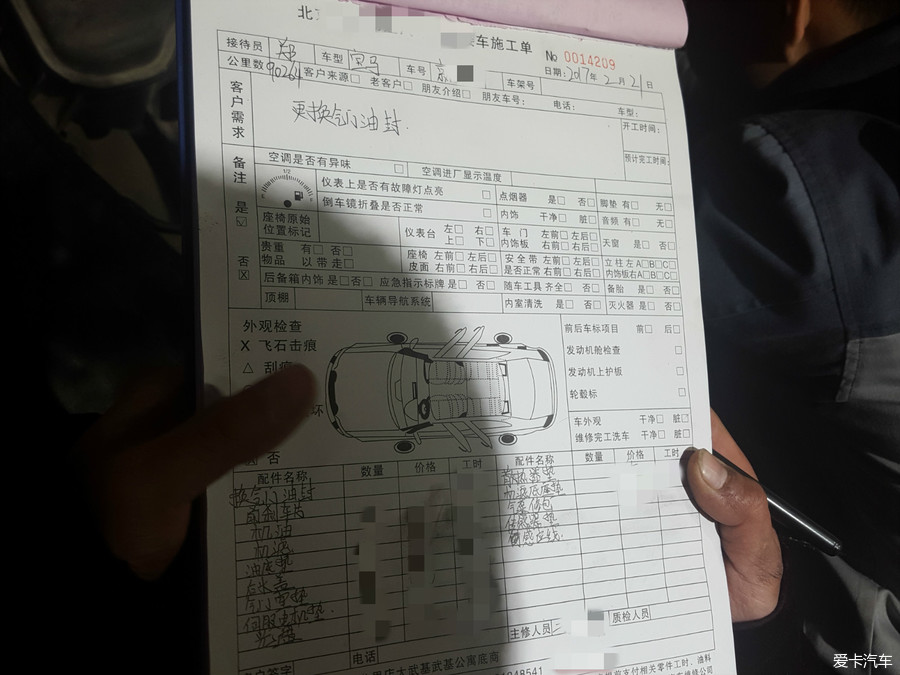 北
车施工单
No 0014209
接待员 郑 车型 宝马 车号 京 车架号 日期:2017年2月21日
公里数 90264 客户来源□ 老客户□ 朋友介绍□ 朋友车号: 电话: 车型:
客户需求 更换气门油封. 开工时间:
预计完工时间:
备注 是☑ 否☒
空调是否有异味 □ 空调进厂显示温度
1/2
仪表上是否有故障灯点亮 □ 点烟器 是□ 否□ 脚垫 有□ 无□
倒车镜折叠是否正常 □ 内饰 干净□ 脏□ 音频 有□ 无□
座椅原始位置标记 仪表台 左□ 右□ 上□ 下□ 车门内饰板 左前□ 左后□ 右前□ 右后□ 天窗 是□ 否□
贵重物品 有□ 否□ 以带走□ 座椅皮面 左前□ 左后□ 右前□ 右后□ 安全带是否正常 左前□ 左后□ 右前□ 右后□ 立柱左A□B□C□ 内饰板右A□B□C□
后备箱内饰 是□否□ 应急指示标牌 是□ 否□ 随车工具 齐全□ 否□ 备胎 是□ 否□
顶棚 车辆导航系统 内室清洗 是□ 否□ 灭火器 是□ 否□
外观检查
X 飞石击痕
△ 刮
坏
否
前后车标项目 前□ 后□
发动机舱检查 □
发动机上护板 □
轮毂标 □
车外观 干净□ 脏□
维修完工洗车 干净□ 脏□
配件名称 数量 价格 工时 配件名称 数量 价格 工时
换气门油封
前刹车片
机油
机滤
机滤底座垫
主修人员 质检人员
电话
武基武基公寓底商
848541
支付相关零件工时、油料
爱卡汽车